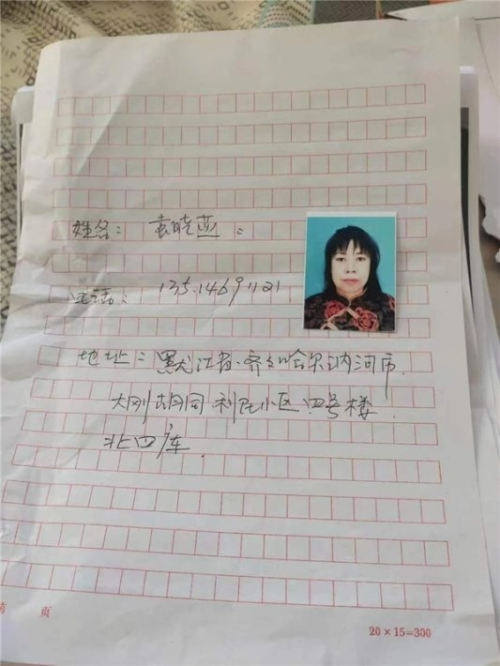 姓名：袁晓燕：
电话：135.1469 1121
地址：黑龙江省.齐齐哈尔讷河市.
大刚胡同.利民小区 四号楼.
北四库.
页
20×15=300